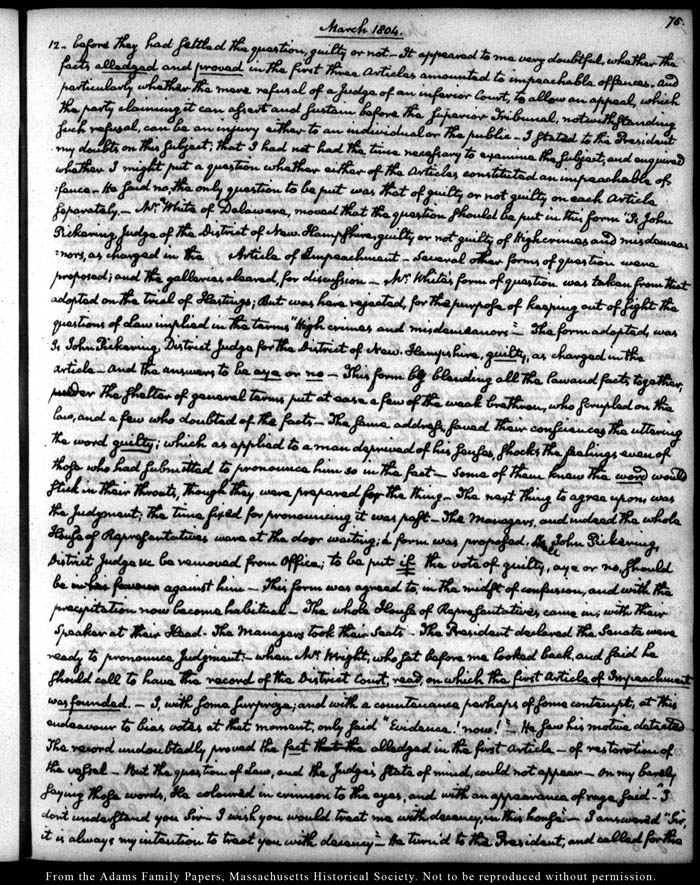 March 1804.
75.
12. before they had settled the question, guilty or not — It appeared to me very doubtful, whether the
facts alledged and proved in the first three Articles amounted to impeachable offences. And
particularly whether the mere refusal of a Judge of an inferior Court, to allow an appeal, which
the party claiming it can assert and sustain before the superior Tribunal, notwithstanding
such refusal, can be an injury either to an individual or the public — I stated to the President
my doubts on this subject; that I had not had the time necessary to examine the subject, and enquired
whether I might put a question whether either of the Articles constituted an impeachable of-
:fence — He said no, the only question to be put was that of guilty or not guilty on each Article
separately. — Mr. White of Delaware, moved that the question should be put in this form "Is John
Pickering, Judge of the District of New-Hampshire, guilty or not guilty of High crimes and misdemea-
:nors, as charged in the Article of Impeachment — Several other forms of question were
proposed; and the galleries cleared, for discussion — Mr. White's form of question was taken from that
adopted on the trial of Hastings; But was here rejected, for the purpose of keeping out of sight the
questions of Law implied in the terms "High crimes and misdemeanors" — The form adopted, was
Is John Pickering, District Judge for the District of New-Hampshire, guilty, as charged in the
article — And the answers to be aye or no — This form by blending all the law and facts together,
under the shelter of general terms put at ease a few of the weak brethren, who scrupled on the
law, and a few who doubted of the facts — The same address, saved their consciences the uttering
the word guilty; which as applied to a man deprived of his senses, shocks the feelings even of
those who had submitted to pronounce him so in the fact — Some of them knew the word would
stick in their throats, though they were prepared for the thing — The next thing to agree upon, was
the Judgment; the time fixed for pronouncing it was past — The Managers, and indeed the whole
House of Representatives were at the door waiting; a form was proposed. John Pickering,
District Judge &c be removed from Office; to be put if the vote of guilty, aye or no, should
be against him — This form was agreed to, in the midst of confusion, and with the
precipitation now become habitual — The whole House of Representatives came in; with their
Speaker at their Head — The Managers took their Seats — The President declared the Senate were
ready to pronounce Judgment; — when Mr. Wright, who sat before me looked back, and said he
should call to have the record of the District Court, read, on which the first Article of Impeachment
was founded. — I, with some surprize, and with a countenance perhaps of some contempt, at this
endeavour to bias votes at that moment, only said "Evidence! now!" — He saw his motive detected
The record undoubtedly proved the fact that the alledged in the first Article — of restoration of
the vessel — But the question of Law, and the Judge's state of mind, could not appear — On my barely
saying those words, He coloured in crimson to the eyes, and with an appearance of rage, said — "I
dont understand you Sir — I wish you would treat me with decency, in this house — I answered "Sir,
it is always my intention to treat you with decency" — He turn'd to the President, and called for the
From the Adams Family Papers, Massachusetts Historical Society. Not to be reproduced without permission.